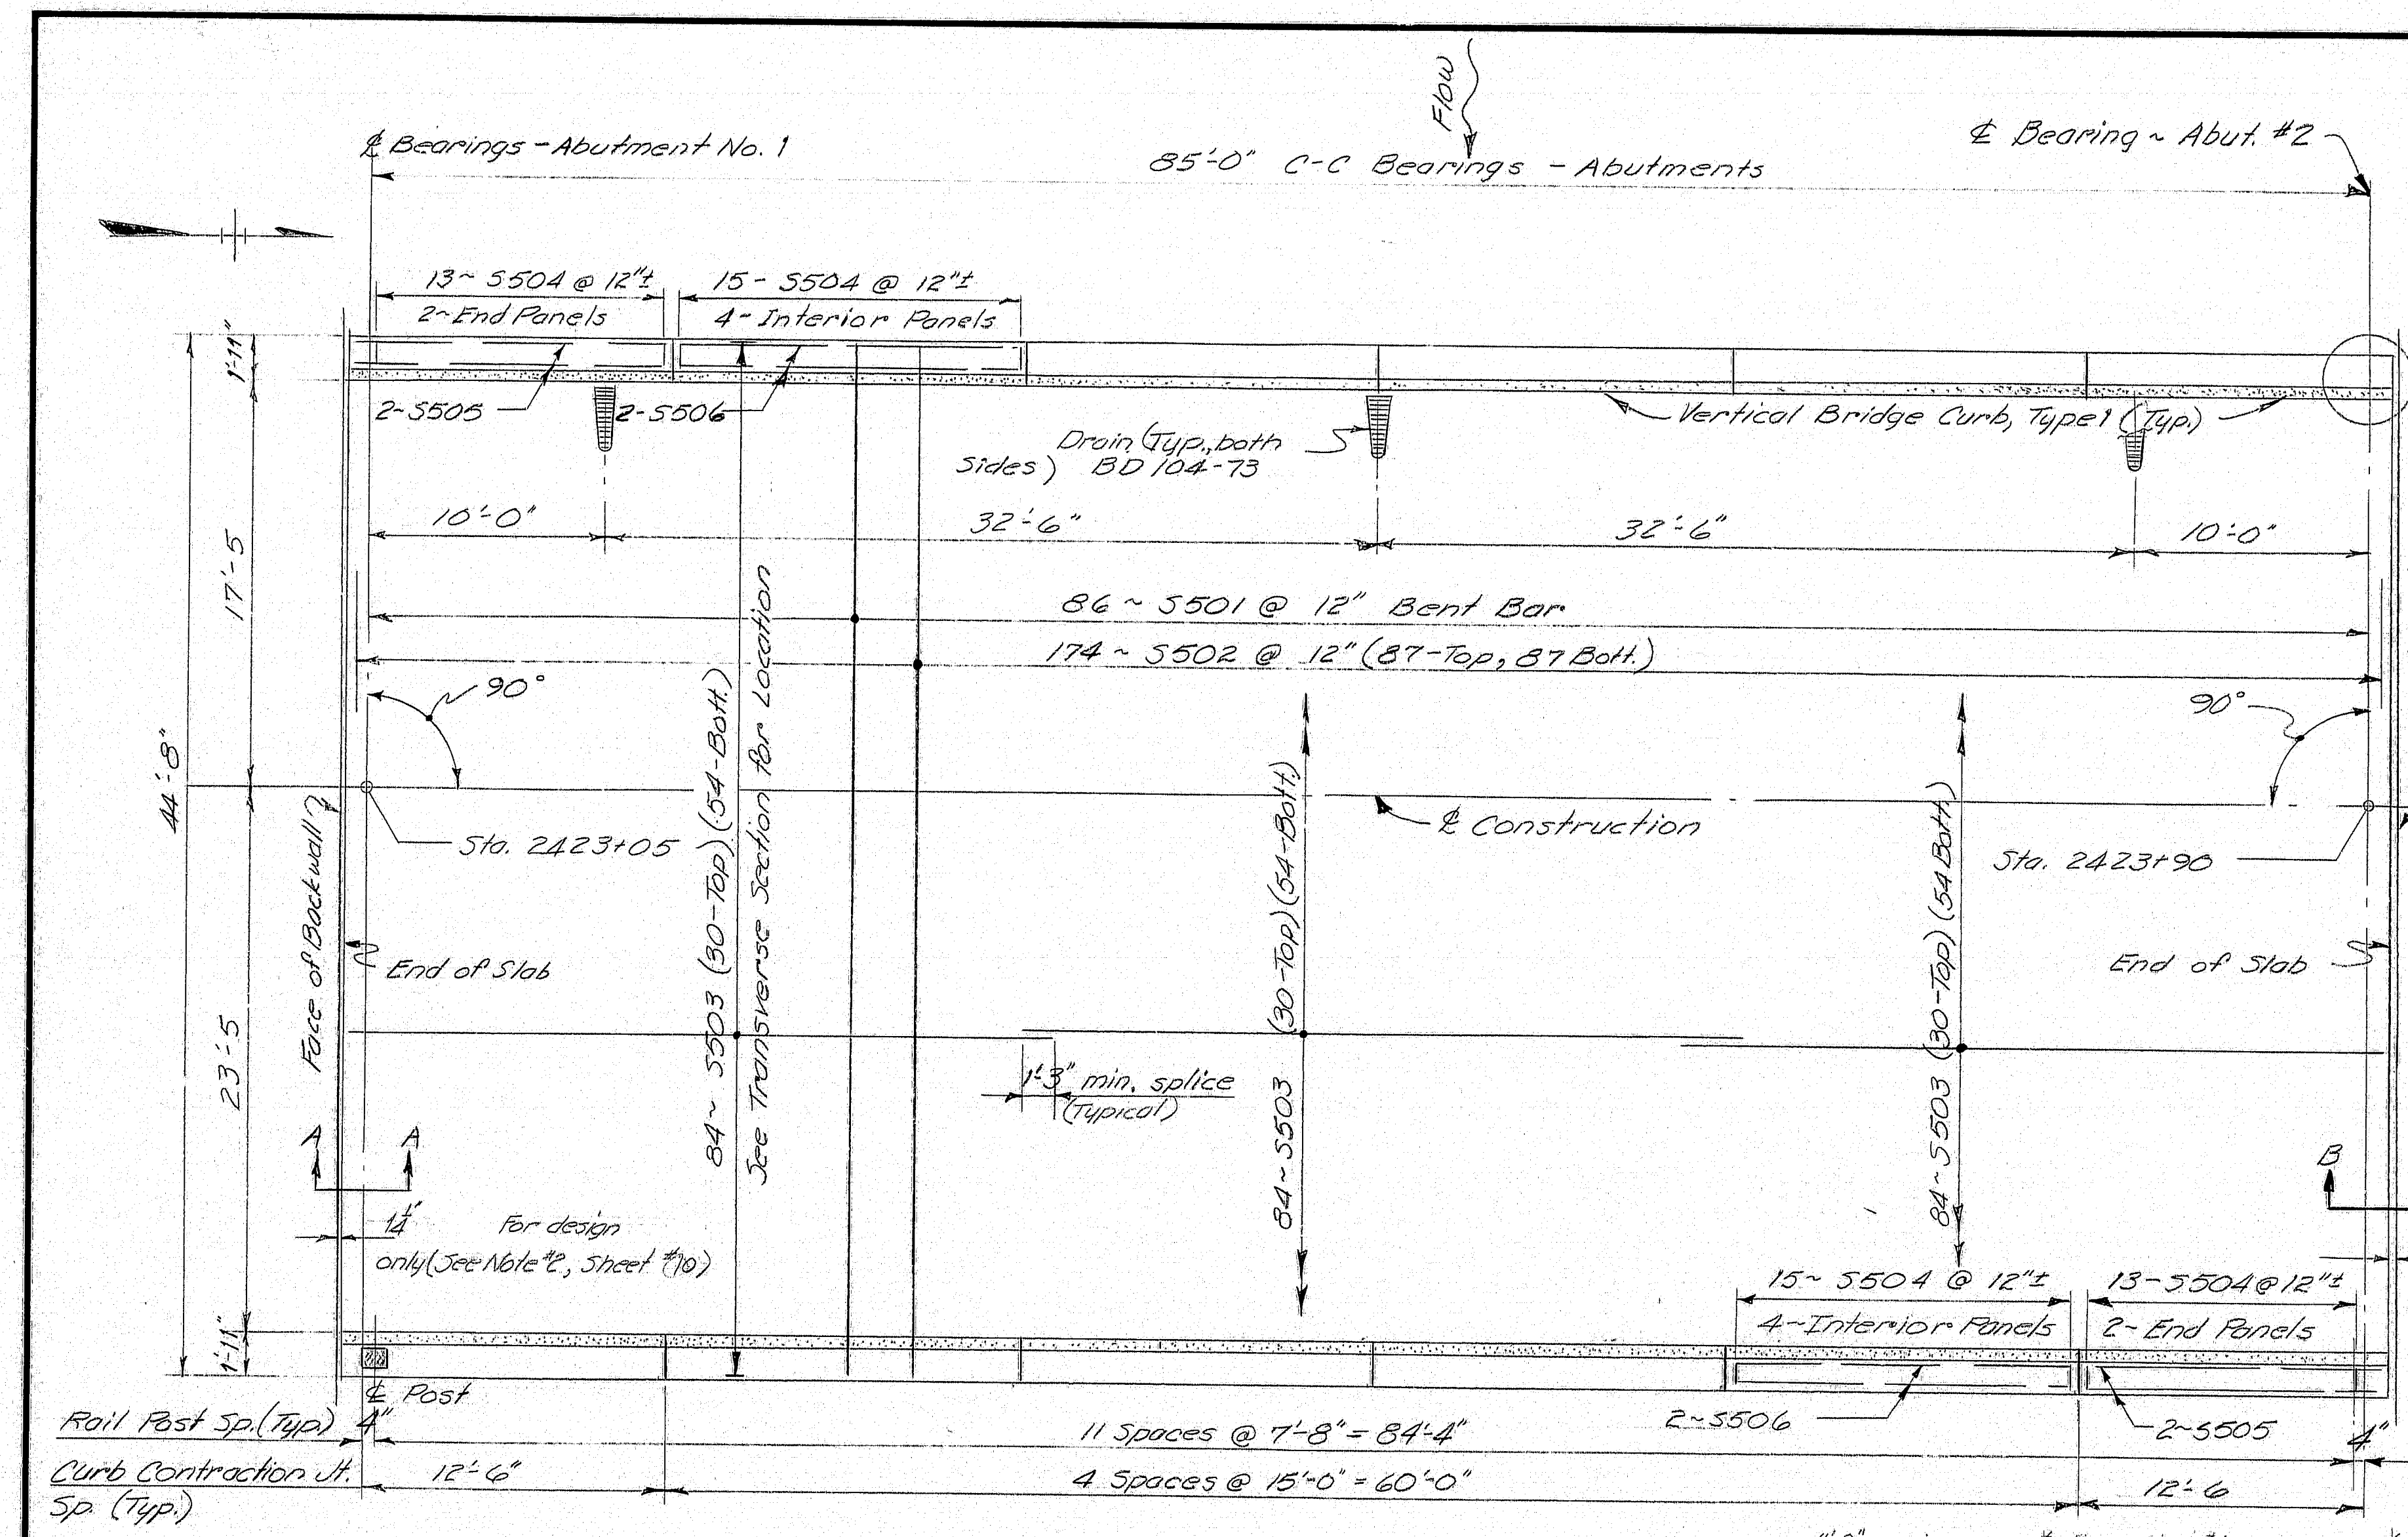 Flow
℄ Bearings - Abutment No. 1
85'-0" C-C Bearings - Abutments
℄ Bearing ~ Abut. #2
13~ S504 @ 12"±
2~End Panels
15- S504 @ 12"±
4- Interior Panels
1'-11"
2-S505
2-S506
Drain (Typ., both
Sides) BD 104-73
Vertical Bridge Curb, Type 1 (Typ.)
10'-0"
32'-6"
32'-6"
10'-0"
17'-5
86 ~ S501 @ 12" Bent Bar
174 ~ S502 @ 12" (87-Top, 87 Bott.)
90°
90°
44'-8"
℄ Construction
Sta. 2423+05
Sta. 2423+90
Face of Backwall
End of Slab
End of Slab
84~ S503 (30-Top)(54-Bott.)
See Transverse Section for Location
84~ S503 (30-Top)(54-Bott.)
84~S503 (30-Top)(54 Bott.)
23'-5
1'-3" min. splice
(Typical)
A A
B
1¼"
For design
only (See Note #2, Sheet #10)
15~ S504 @ 12"±
4~Interior Panels
13-S504@12"±
2- End Panels
1'-11"
℄ Post
2~S506
2~S505
Rail Post Sp. (Typ.) 4"
11 Spaces @ 7'-8" = 84'-4"
4"
Curb Contraction Jt.
Sp. (Typ.)
12'-6"
4 Spaces @ 15'-0" = 60'-0"
12'-6